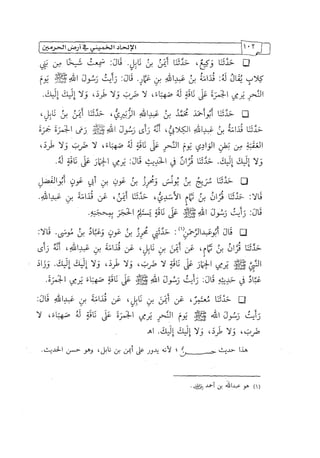 ١٠٢ الإلحاد الخميني في أرض الحرمين
حدثنا وكيع، حدثنا أيمن بن نابل. قال: سمعت شيخًا من بني
كلاب يقال له: قدامة بن عبدالله بن عمار. قال: رأيت رسول الله ﷺ يوم
النحر يرمي الجمرة على ناقة له صهباء، لا ضرب ولا طرد، ولا إليك إليك.
حدثنا أبوأحمد محمد بن عبدالله الزبيري، حدثنا أيمن بن نابل،
حدثنا قدامة بن عبدالله الكلابي، أنه رأى رسول الله ﷺ رمى الجمرة جمرة
العقبة من بطن الوادي يوم النحر على ناقة له صهباء، لا ضرب ولا طرد،
ولا إليك إليك. حدثنا قران في الحديث قال: يرمي الجمار على ناقة له.
حدثنا سريج بن يونس ومحرز بن عون بن أبي عون أبوالفضل
قالا: حدثنا قران بن تمام الأسدي، حدثنا أيمن، عن قدامة بن عبدالله.
قال: رأيت رسول الله ﷺ على ناقة يستلم الحجر بمحجنه.
قال أبوعبدالرحمن(١): حدثني محرز بن عون وعباد بن موسى. قالا:
حدثنا قران بن تمام، عن أيمن بن نابل، عن قدامة بن عبدالله، أنه رأى
النبي ﷺ يرمي الجمار على ناقة لا ضرب، ولا طرد، ولا إليك إليك. وزاد
عباد في حديثه قال: رأيت رسول الله ﷺ على ناقة صهباء يرمي الجمرة.
حدثنا معتمر، عن أيمن بن نابل، عن قدامة بن عبدالله قال:
رأيت رسول الله ﷺ يوم النحر يرمي الجمرة على ناقة له صهباء، لا
ضرب، ولا طرد، ولا إليك إليك. اهـ
هذا حديث حسن؛ لأنه يدور على أيمن بن نابل، وهو حسن الحديث.
(١) هو عبدالله بن أحمد